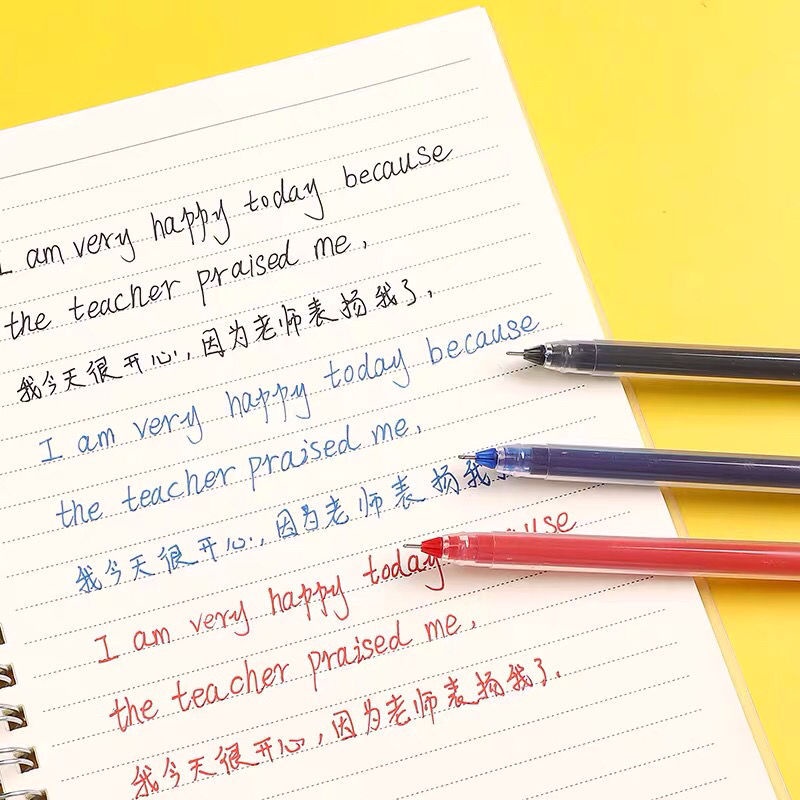 I am very happy today because
the teacher praised me.
我今天很开心,因为老师表扬我了.
I am very happy today because
the teacher praised me.
我今天很开心,因为老师表扬我
I am very happy today
the teacher praised me.
我今天很开心,因为老师表扬我了.